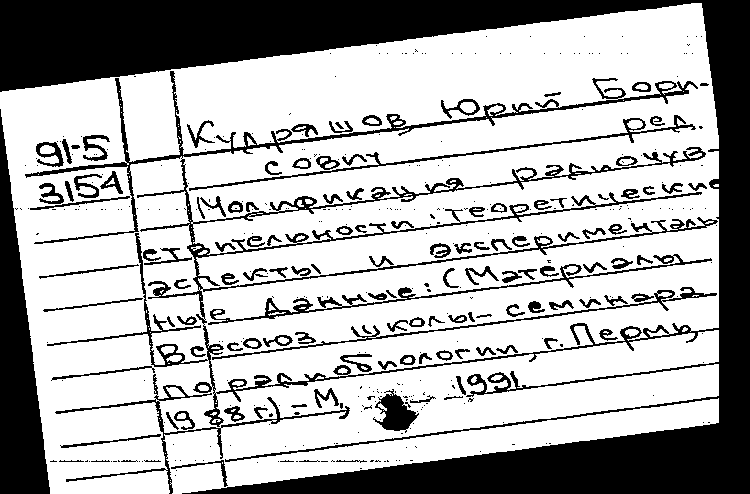 91-5
3154
Кудряшов, Юрий Бори-
сович ред.
Модификация радиочув-
ствительности: теоретические
аспекты и эксперименталь-
ные данные: (Материалы
Всесоюз. школы-семинара
по радиобиологии, г. Пермь,
1988 г.) - М, 1991.